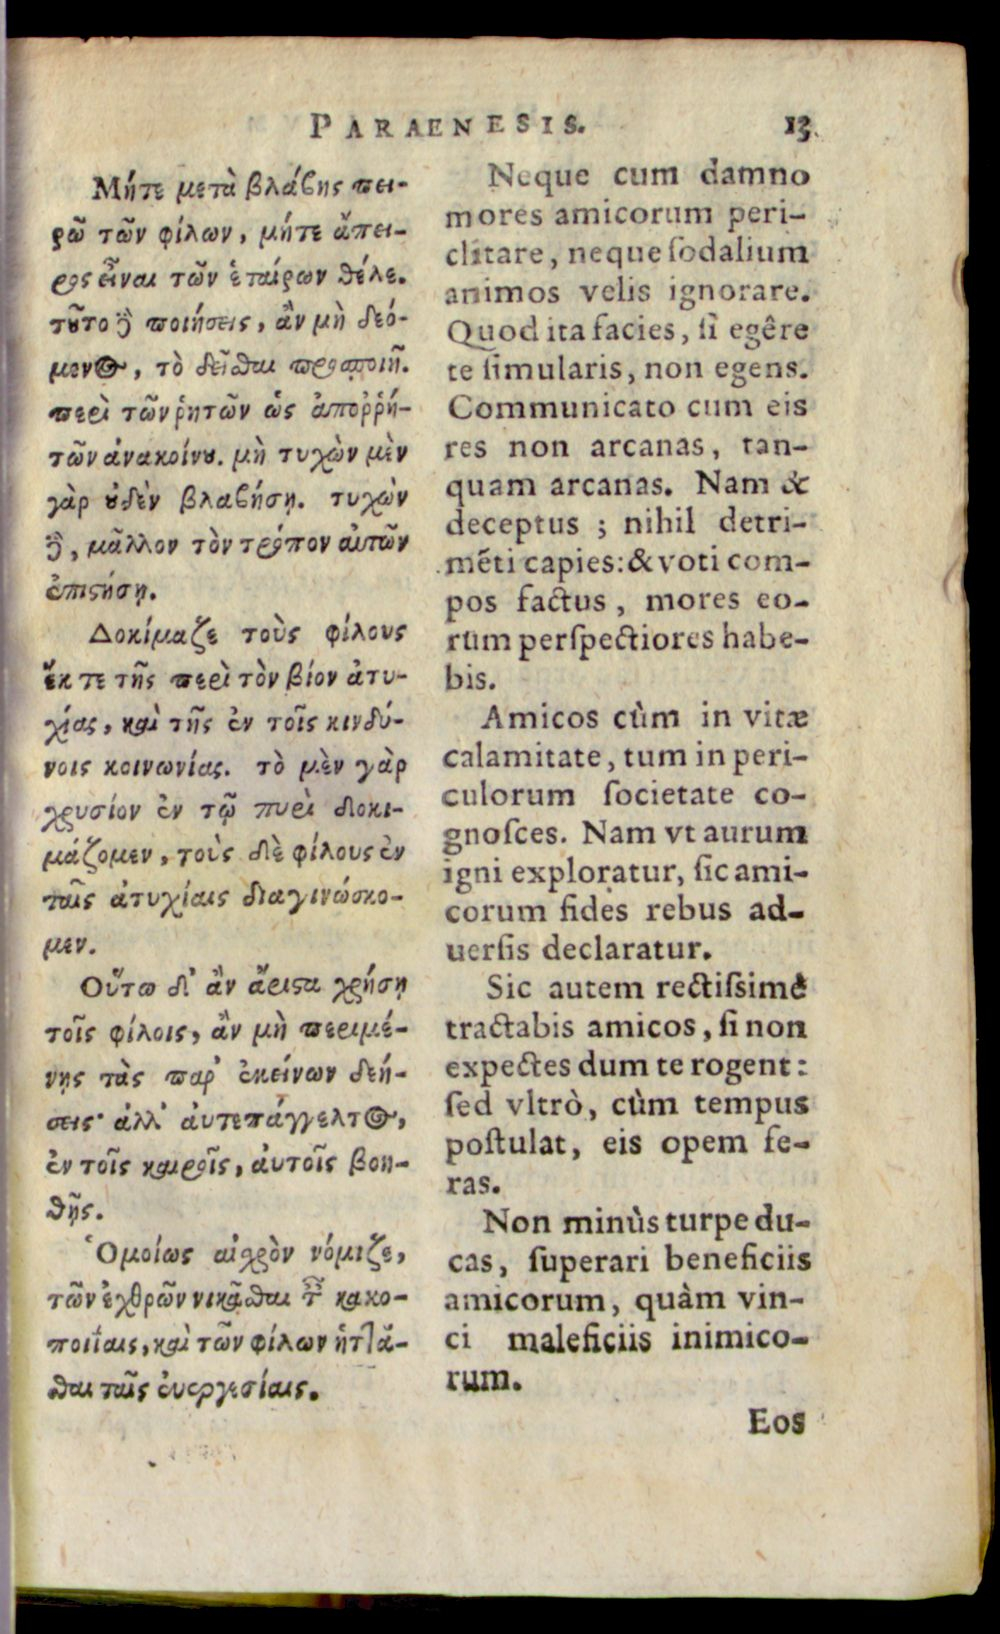 PARAENESIS. 13
Μήτε μετὰ βλάβης πει-
ρῶ τῶν φίλων, μήτε ἄπει-
ρος εἶναι τῶν ἑταίρων θέλε.
τοῦτο δὲ ποιήσεις, ἂν μὴ δεό-
μενος, τὸ δεῖσθαι προσποιῇ.
περὶ τῶν ῥητῶν ὡς ἀποῤῥή-
των ἀνακοίνου. μὴ τυχὼν μὲν
γὰρ οὐδὲν βλαβήσῃ. τυχὼν
δὲ, μᾶλλον τὸν τρόπον αὐτῶν
ἐπιστήσῃ.
Δοκίμαζε τοὺς φίλους
ἔκ τε τῆς περὶ τὸν βίον ἀτυ-
χίας, καὶ τῆς ἐν τοῖς κινδύ-
νοις κοινωνίας. τὸ μὲν γὰρ
χρυσίον ἐν τῷ πυρὶ δοκι-
μάζομεν, τοὺς δὲ φίλους ἐν
ταῖς ἀτυχίαις διαγινώσκο-
μεν.
Οὕτω δ' ἂν ἄριστα χρήσῃ
τοῖς φίλοις, ἂν μὴ περιμέ-
νῃς τὰς παρ' ἐκείνων δεή-
σεις· ἀλλ' ἀυτεπάγγελτος,
ἐν τοῖς καιροῖς, ἀυτοῖς βοη-
θῇς.
Ὁμοίως αἰσχρὸν νόμιζε,
τῶν ἐχθρῶν νικᾶσθαι ταῖς κακο-
ποιΐαις, καὶ τῶν φίλων ἡττᾶ-
σθαι ταῖς ἐυεργεσίαις.
Neque cum damno
mores amicorum peri-
clitare, neque ſodalium
animos velis ignorare.
Quod ita facies, ſi egêre
te ſimularis, non egens.
Communicato cum eis
res non arcanas, tan-
quam arcanas. Nam &
deceptus ; nihil detri-
mẽti capies: & voti com-
pos factus, mores eo-
rum perſpectiores habe-
bis.
Amicos cùm in vitæ
calamitate, tum in peri-
culorum ſocietate co-
gnoſces. Nam vt aurum
igni exploratur, ſic ami-
corum fides rebus ad-
uerſis declaratur.
Sic autem rectiſsimè
tractabis amicos, ſi non
expectes dum te rogent:
ſed vltrò, cùm tempus
poſtulat, eis opem fe-
ras.
Non minùs turpe du-
cas, ſuperari beneficiis
amicorum, quàm vin-
ci maleficiis inimico-
rum.
Eos